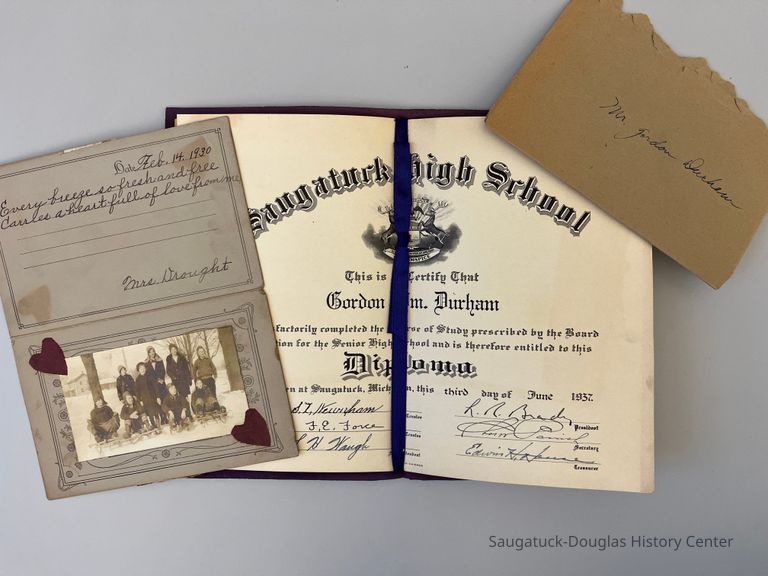 Date Feb. 14. 1930
Every breeze so fresh and free
Carries a heart full of love from me
Mrs. Drought
Saugatuck High School
This is Certify That
Gordon Wm. Durham
factorily completed the rse of Study prescribed by the Board
tion for the Senior High chool and is therefore entitled to this
Diploma
en at Saugatuck, Mich an, this third day of June 1937.
F. E. Force
Trustee
H Waugh
L. R. Brady
President
Secretary
Treasurer
Mr. Gordon Durham
Saugatuck-Douglas History Center